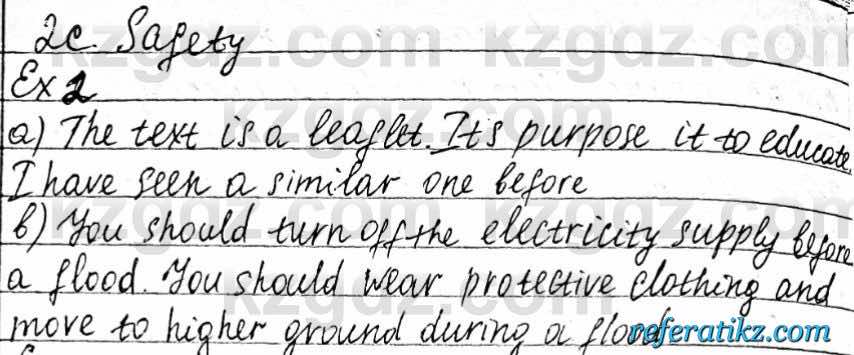 2c. Safety
Ex 2
a) The text is a leaflet. Its purpose it to educate.
I have seen a similar one before
b) You should turn off the electricity supply before
a flood. You should wear protective clothing and
move to higher ground during a flood
referatikz.com
kzgdz.com